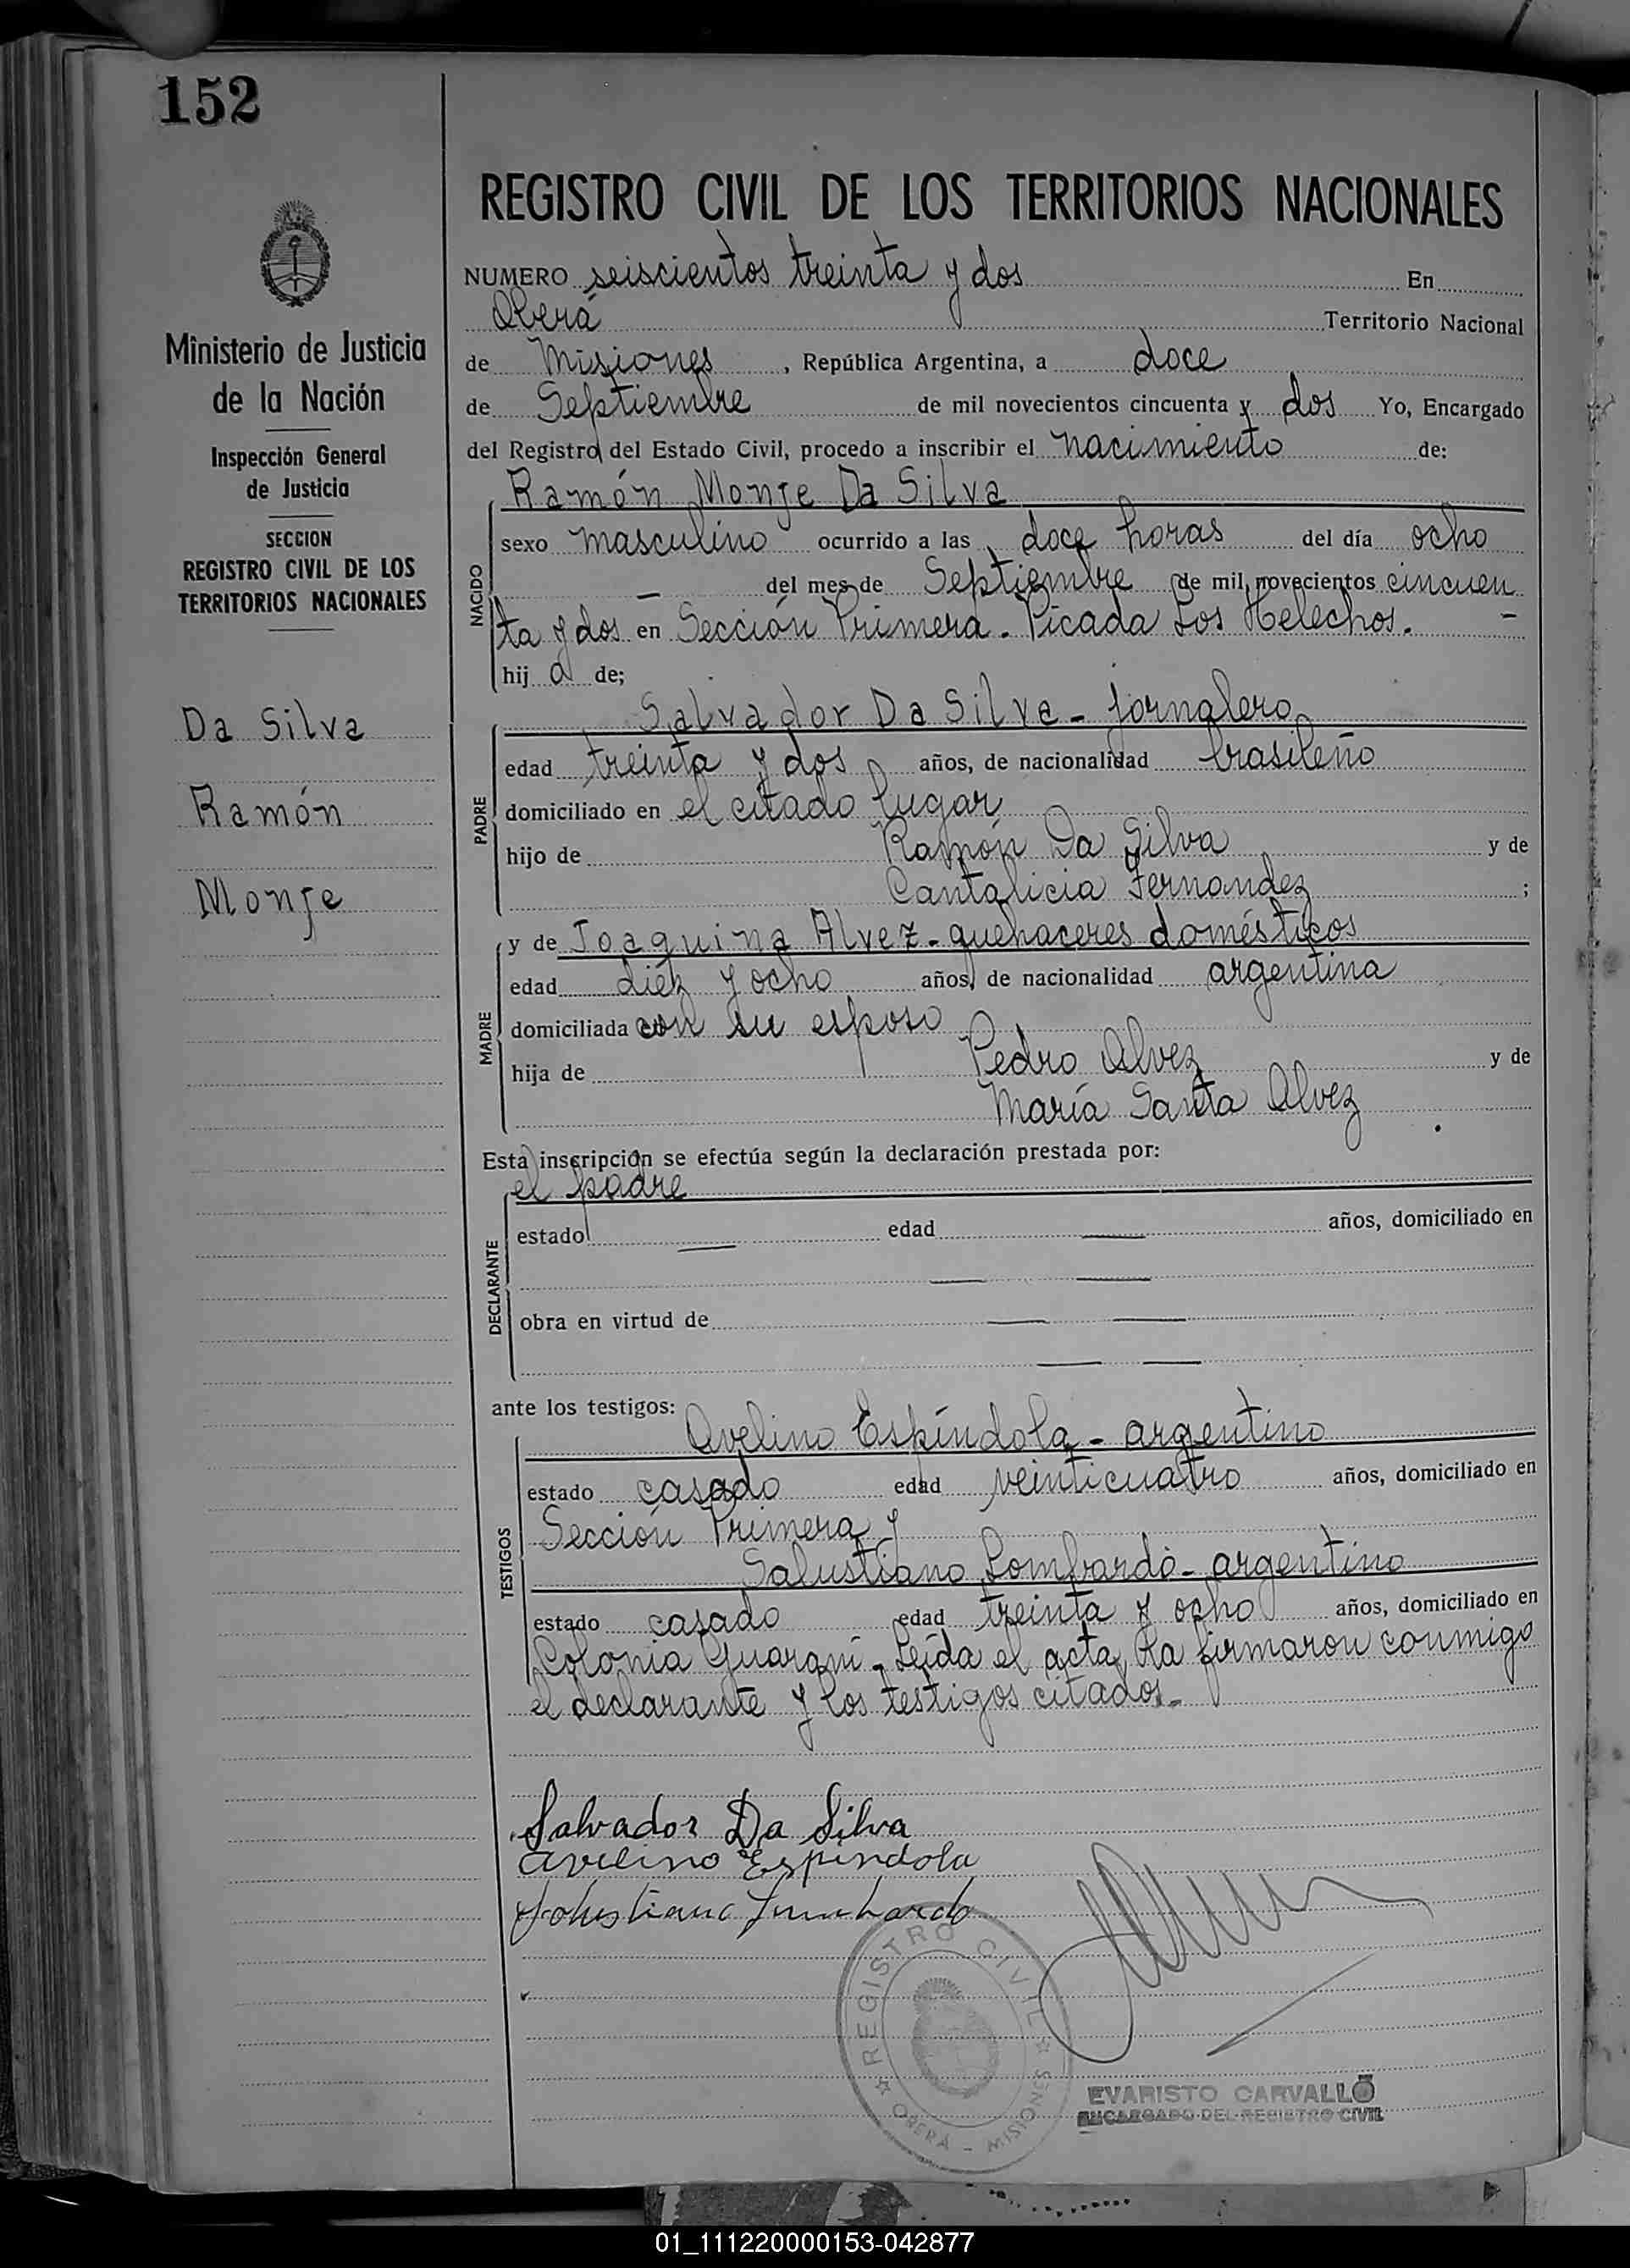 152
REGISTRO CIVIL DE LOS TERRITORIOS NACIONALES
Ministerio de Justicia
de la Nación
Inspección General
de Justicia
SECCION
REGISTRO CIVIL DE LOS
TERRITORIOS NACIONALES
Da Silva
Ramón
Monje
NUMERO seiscientos treinta y dos En
Oberá Territorio Nacional
de Misiones, República Argentina, a doce
de Septiembre de mil novecientos cincuenta y dos Yo, Encargado
del Registro del Estado Civil, procedo a inscribir el nacimiento de:
NACIDO
Ramón Monje Da Silva
sexo masculino ocurrido a las doce horas del día ocho
— del mes de Septiembre de mil novecientos cincuen
ta y dos en Sección Primera. Picada Los Helechos. —
hij o de;
PADRE
Salvador Da Silva - jornalero
edad treinta y dos años, de nacionalidad brasileño
domiciliado en el citado lugar
hijo de Ramón Da Silva y de
Cantalicia Fernandez ;
MADRE
y de Joaquina Alvez - quehaceres domésticos
edad diez y ocho años, de nacionalidad argentina
domiciliada con su esposo
hija de Pedro Alvez y de
María Santa Alvez .
Esta inscripción se efectúa según la declaración prestada por:
DECLARANTE
el padre
estado — edad — años, domiciliado en
— —
obra en virtud de — —
— —
ante los testigos:
TESTIGOS
Avelino Espíndola - argentino
estado casado edad veinticuatro años, domiciliado en
Sección Primera y
Salustiano Lombardo - argentino
estado casado edad treinta y ocho años, domiciliado en
Colonia Guaraní - Leída el acta, la firmaron conmigo
el declarante y los testigos citados. -
Salvador Da Silva
Avelino Espindola
REGISTRO CIVIL
OBERÁ - MISIONES
EVARISTO CARVALLO
ENCARGADO DEL REGISTRO CIVIL
01_111220000153-042877